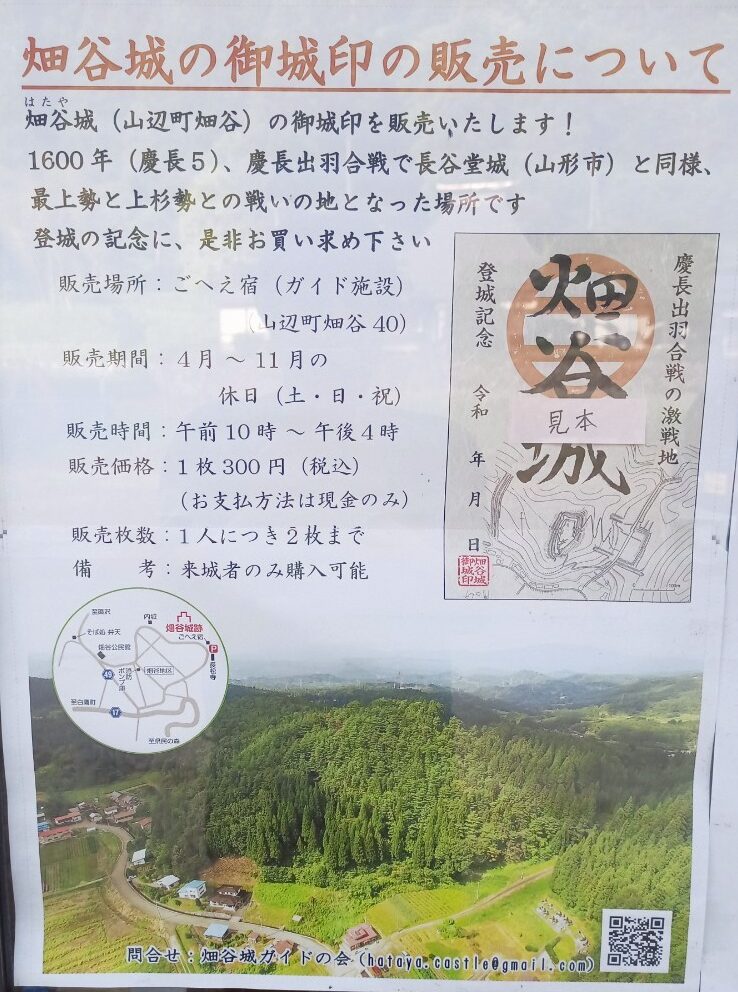 畑谷城の御城印の販売について
はたや
畑谷城（山辺町畑谷）の御城印を販売いたします！
1600年（慶長5）、慶長出羽合戦で長谷堂城（山形市）と同様、
最上勢と上杉勢との戦いの地となった場所です
登城の記念に、是非お買い求め下さい
販売場所：ごへえ宿（ガイド施設）
（山辺町畑谷40）
販売期間：4月～11月の
休日（土・日・祝）
販売時間：午前10時～午後4時
販売価格：1枚300円（税込）
（お支払方法は現金のみ）
販売枚数：1人につき2枚まで
備　考：来城者のみ購入可能
慶長出羽合戦の激戦地
畑谷城
見本
登城記念　令和　年　月　日
畑谷城
御城印
至簗沢
そば処 弁天
畑谷公民館
内城
畑谷城跡
ごへえ宿
P
長松寺
消防
ポンプ庫
畑谷地区
49
至白鷹町
17
至県民の森
問合せ：畑谷城ガイドの会（hataya.castle@gmail.com）